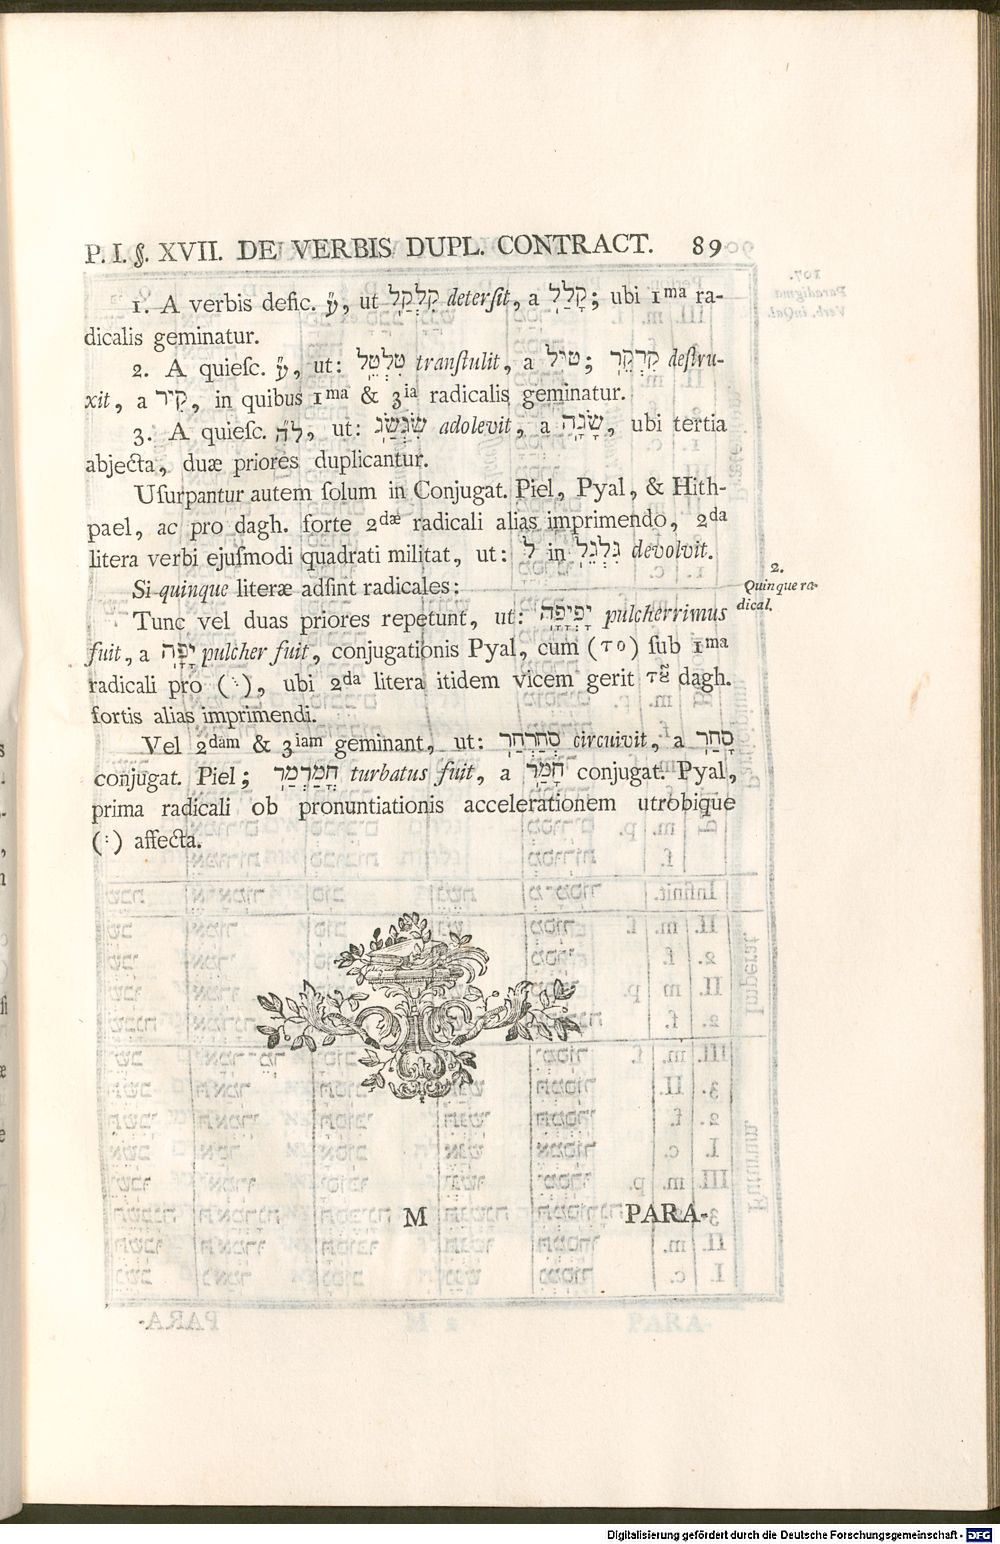 P. I. §. XVII. DE VERBIS DUPL. CONTRACT. 89
1. A verbis defic. ע״ע, ut קִלְקֵל deterſit, a קָלַל; ubi 1ma ra-
dicalis geminatur.
2. A quieſc. ע״ו, ut: טִלְטֵל tranſtulit, a טיל; קִרְקֵר deſtru-
xit, a קיר, in quibus 1ma & 3ia radicalis geminatur.
3. A quieſc. ל״ה, ut: שִׂגְשֵׂג adolevit, a שָׂגָה, ubi tertia
abjecta, duæ priores duplicantur.
Uſurpantur autem ſolum in Conjugat. Piel, Pyal, & Hith-
pael, ac pro dagh. forte 2dæ radicali alias imprimendo, 2da
litera verbi ejuſmodi quadrati militat, ut: ל in גִּלְגֵּל devolvit.
Si quinque literæ adſint radicales:
2.
Quinque ra-
dical.
Tunc vel duas priores repetunt, ut: יָפְיָפָה pulcherrimus
fuit, a יָפָה pulcher fuit, conjugationis Pyal, cum ( ) ſub 1ma
radicali pro ( ֻ ), ubi 2da litera itidem vicem gerit dagh.
fortis alias imprimendi.
Vel 2dam & 3iam geminant, ut: סְחַרְחַר circuivit, a סָחַר
conjugat. Piel; חֳמַרְמַר turbatus fuit, a חָמַר conjugat. Pyal,
prima radicali ob pronuntiationis accelerationem utrobique
( ְ ) affecta.
M PARA-
Digitalisierung gefördert durch die Deutsche Forschungsgemeinschaft - DFG